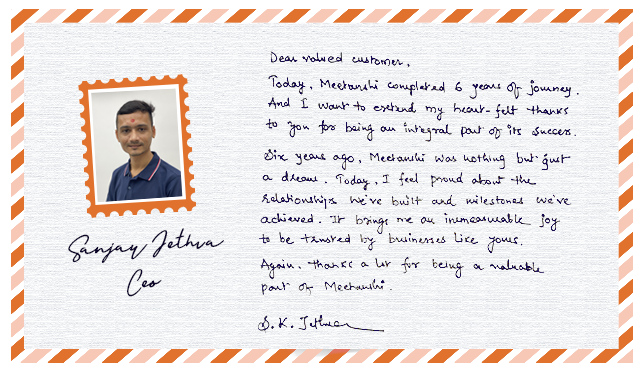 Dear valued customer,
Today, Meetanshi completed 6 years of journey.
And I want to extend my heart-felt thanks
to you for being an integral part of its success.
Six years ago, Meetanshi was nothing but just
a dream. Today, I feel proud about the
relationships we've built and milestones we've
achieved. It brings me an immeasurable joy
to be trusted by businesses like yours.
Again, thanks a lot for being a valuable
part of Meetanshi.
S. K. Jethva
Sanjay Jethva
Ceo